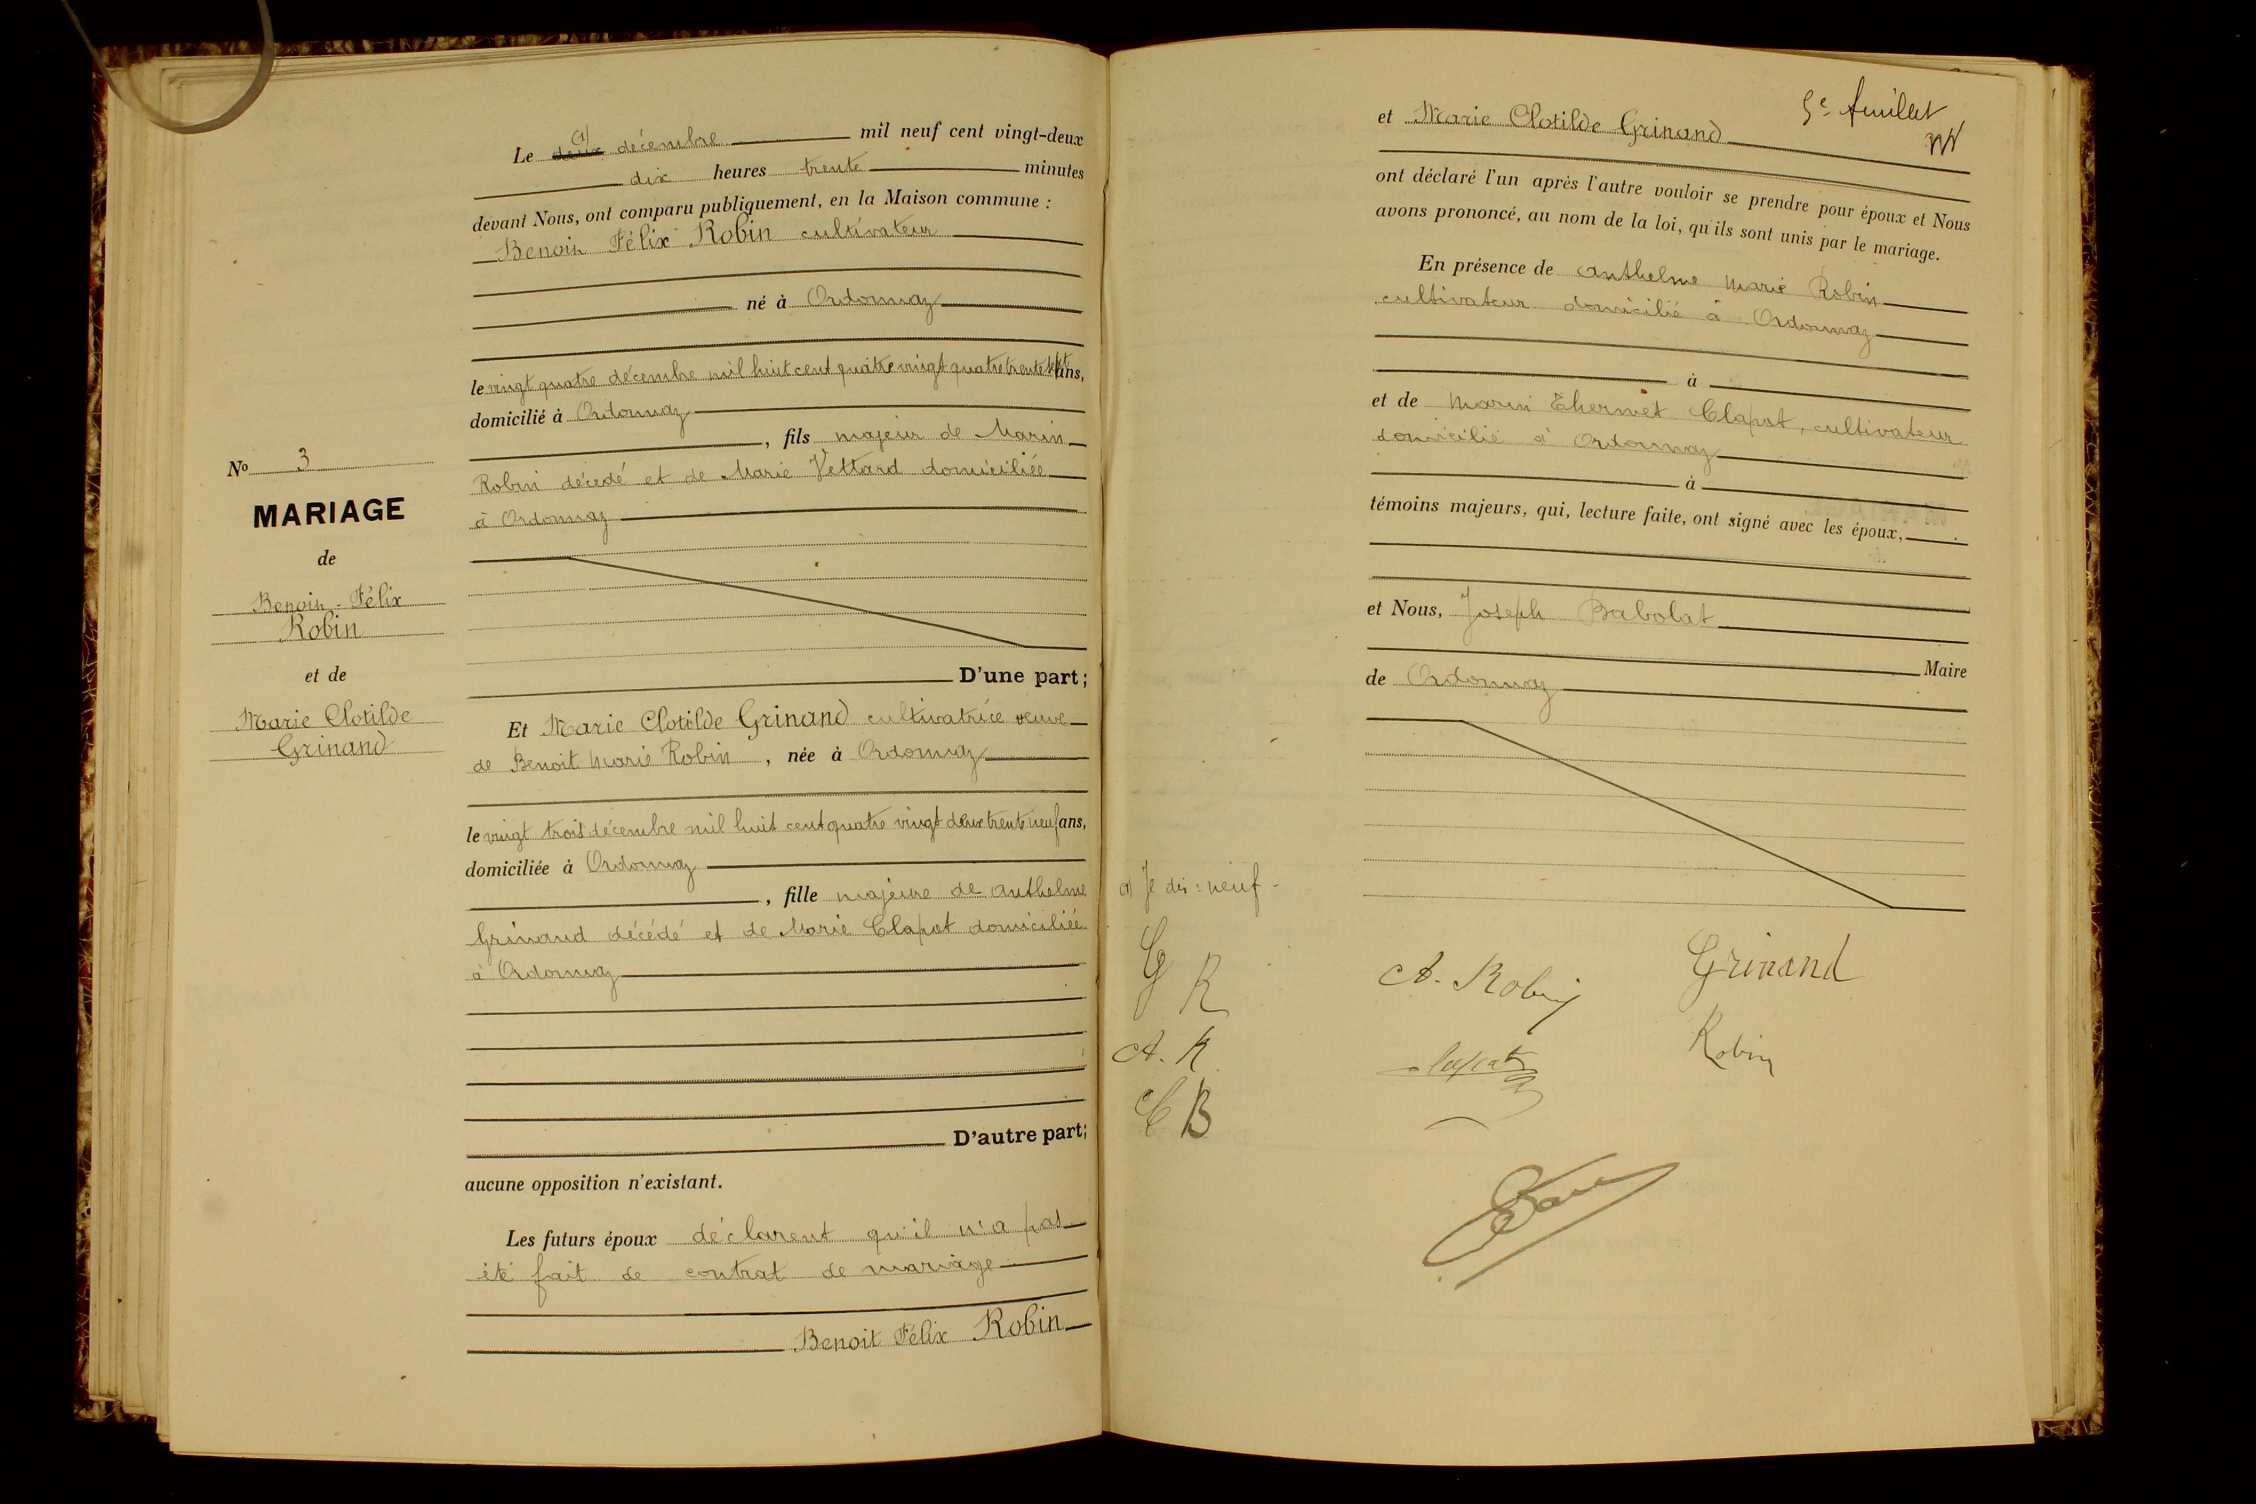 N° 3
MARIAGE
de
Benoit-Félix
Robin
et de
Marie Clotilde
Grinand
Le deux a) décembre mil neuf cent vingt-deux
dix heures trente minutes
devant Nous, ont comparu publiquement, en la Maison commune :
Benoit Félix Robin cultivateur
né à Ordonnaz
le vingt quatre décembre mil huit cent quatre vingt quatre trente sept ans,
domicilié à Ordonnaz
, fils majeur de Marin
Robin décédé et de Marie Vettard domiciliée
à Ordonnaz
D'une part ;
Et Marie Clotilde Grinand cultivatrice veuve
de Benoit Marie Robin , née à Ordonnaz
le vingt trois décembre mil huit cent quatre vingt deux trente neuf ans,
domiciliée à Ordonnaz
, fille majeure de Anthelme
Grinand décédé et de Marie Clapot domiciliée
à Ordonnaz
D'autre part ;
aucune opposition n'existant.
Les futurs époux déclarent qu'il n'a pas
été fait de contrat de mariage
Benoit Félix Robin
5e feuillet
et Marie Clotilde Grinand
ont déclaré l'un après l'autre vouloir se prendre pour époux et Nous
avons prononcé, au nom de la loi, qu'ils sont unis par le mariage.
En présence de Anthelme Marie Robin
cultivateur domicilié à Ordonnaz
à
et de Marin Clapot, cultivateur
domicilié à Ordonnaz
à
témoins majeurs, qui, lecture faite, ont signé avec les époux,
et Nous, Joseph Babolat
Maire
de Ordonnaz
a) Je dis : neuf -
G R
A. R
C B
A. Robin
Grinand
Clapot
Robin